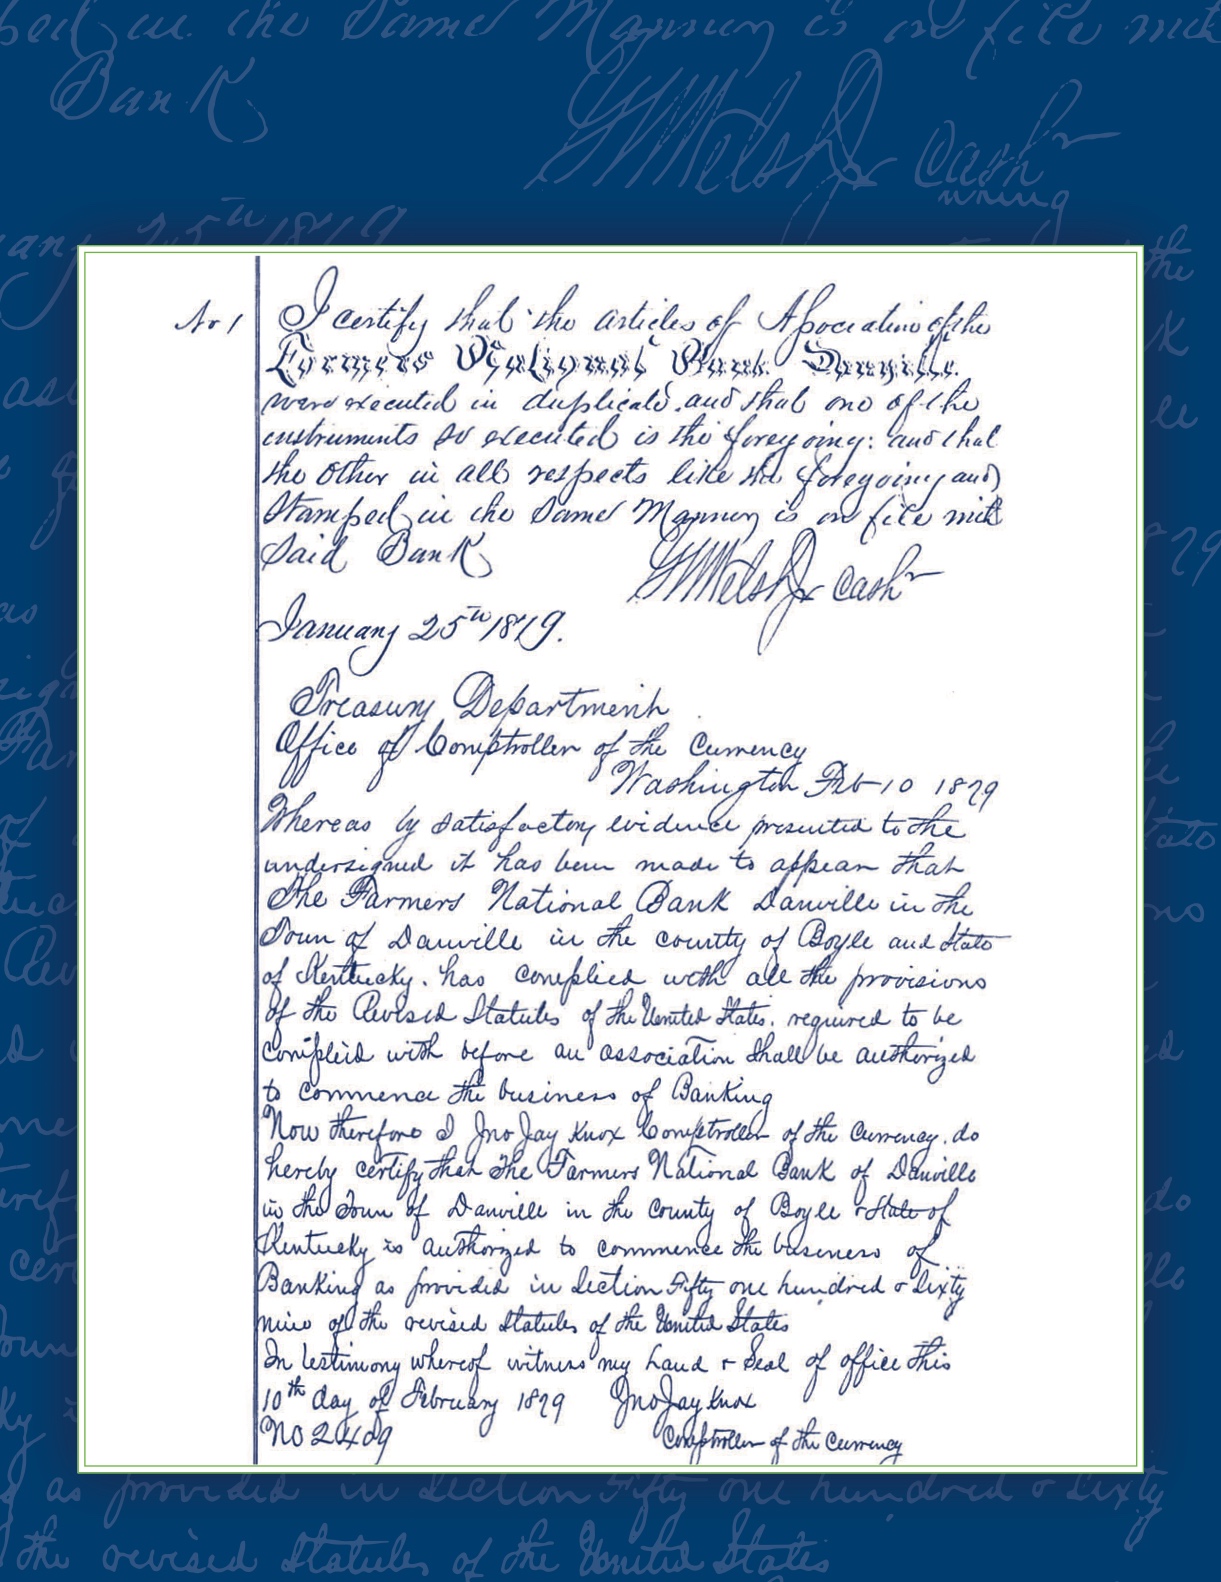 No 1
I certify that the articles of Association of the
Farmers National Bank Danville.
were executed in duplicate. and that one of the
instruments so executed is the foregoing: and that
the other in all respects like the foregoing and
Stamped in the Same Manner is on file with
Said Bank
G W Welsh Jr Cashr
January 25th 1879.
Treasury Department
Office of Comptroller of the Currency
Washington Feb 10 1879
Whereas by satisfactory evidence presented to the
undersigned it has been made to appear that
The Farmers National Bank Danville in the
Town of Danville in the county of Boyle and State
of Kentucky. has complied with all the provisions
of the Revised Statutes of the United States. required to be
complied with before an association shall be authorized
to commence the business of Banking
Now therefore I Jno Jay Knox Comptroller of the Currency. do
hereby certify that The Farmers National Bank of Danville
in the Town of Danville in the County of Boyle & State of
Kentucky is authorized to commence the business of
Banking as provided in Section Fifty one hundred & Sixty
nine of the revised Statutes of the United States
In testimony whereof witness my hand & Seal of office this
10th day of February 1879 Jno Jay Knox
No 2409 Comptroller of the Currency